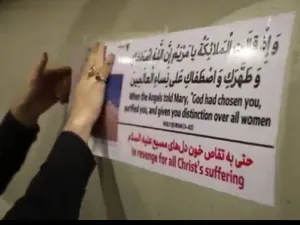 وَإِذْ قَالَتِ الْمَلَائِكَةُ يَا مَرْيَمُ إِنَّ اللَّهَ اصْطَفَاكِ
وَطَهَّرَكِ وَاصْطَفَاكِ عَلَى نِسَاءِ الْعَالَمِينَ
When the Angels told Mary, "God had chosen you,
purified you, and gives you distinction over all women
حتی به تقاص خون دل‌های مسیح علیه السلام
In revenge for all Christ's suffering